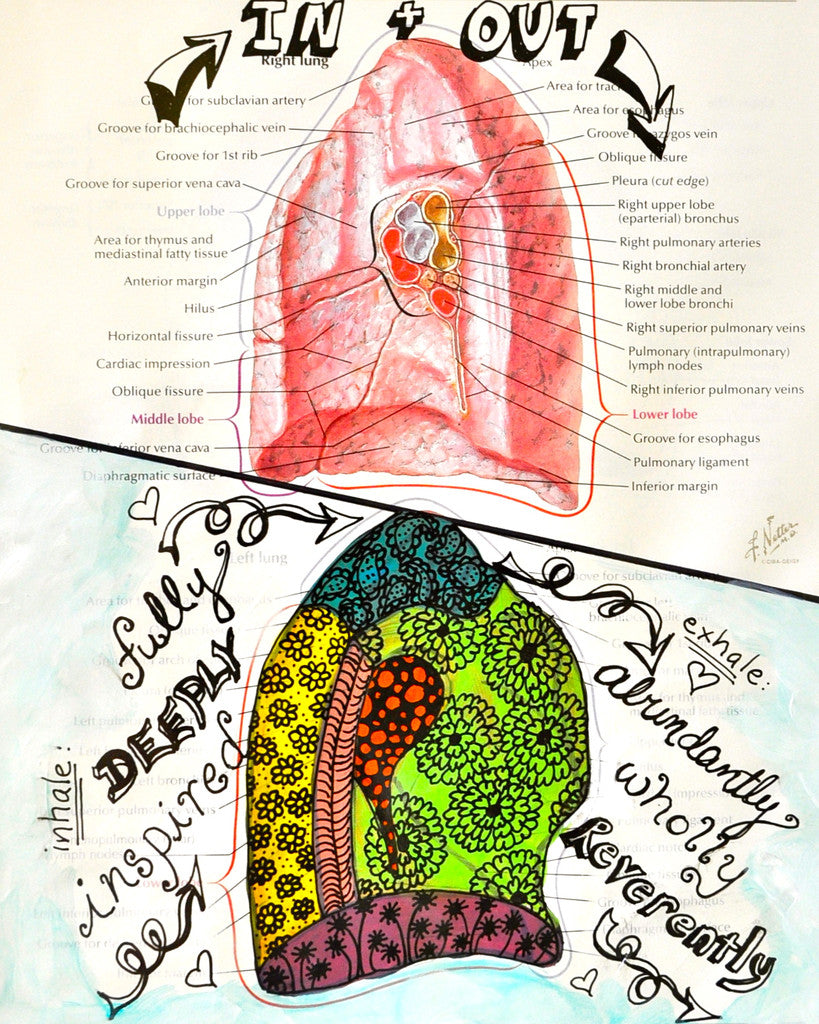 IN + OUT
Right lung
Apex
for subclavian artery
Area for
Groove for brachiocephalic vein
Area for esophagus
Groove for 1st rib
Groove azygos vein
Oblique fissure
Groove for superior vena cava
Pleura (cut edge)
Upper lobe
Right upper lobe
(eparterial) bronchus
Area for thymus and
mediastinal fatty tissue
Right pulmonary arteries
Anterior margin
Right bronchial artery
Hilus
Right middle and
lower lobe bronchi
Horizontal fissure
Right superior pulmonary veins
Cardiac impression
Pulmonary (intrapulmonary)
lymph nodes
Oblique fissure
Right inferior pulmonary veins
Middle lobe
Lower lobe
Groove for inferior vena cava
Groove for esophagus
Diaphragmatic surface
Pulmonary ligament
Inferior margin
F. Netter
M.D.
©CIBA-GEIGY
Left lung
inhale:
fully
DEEPLY
inspired
exhale:
abundantly
wholly
Reverently